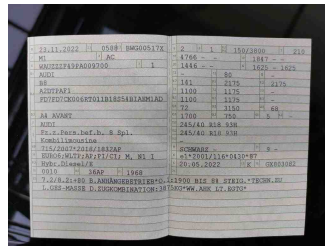 23.11.2022 0588 BWG00517X
M1 AC
WAUZZZF49PA009700 1
AUDI
B8
AZDTPAP1
A4 AVANT
AUDI
Fz.z.Pers.bef.b. 8 Spl.
Kombilimousine
715/2007*2018/1832AP
EURO6;WLTP;AP;PI/CI; M, N1 I
Hybr.Diesel/E
0010 36AP 1968
2 1 150/3800 210
4766 - - 1847 - -
1446 - - 1625 - 1625
- 80 -
141 2175 2175
1100 1175 -
1100 1175 -
72 3150 68
1700 750 5 -
245/40 R18 93H
245/40 R18 93H
-
SCHWARZ - 9 -
e1*2001/116*0430*87
20.05.2022 K GX803082
7.2/8.2:+80 B.ANHÄNGEBETRIEB*O.1:1900 BIS 8% STEIG.*TECHN.ZU
L.GES-MASSE D.ZUGKOMBINATION:3875KG*WW.AHK LT.EGTG*